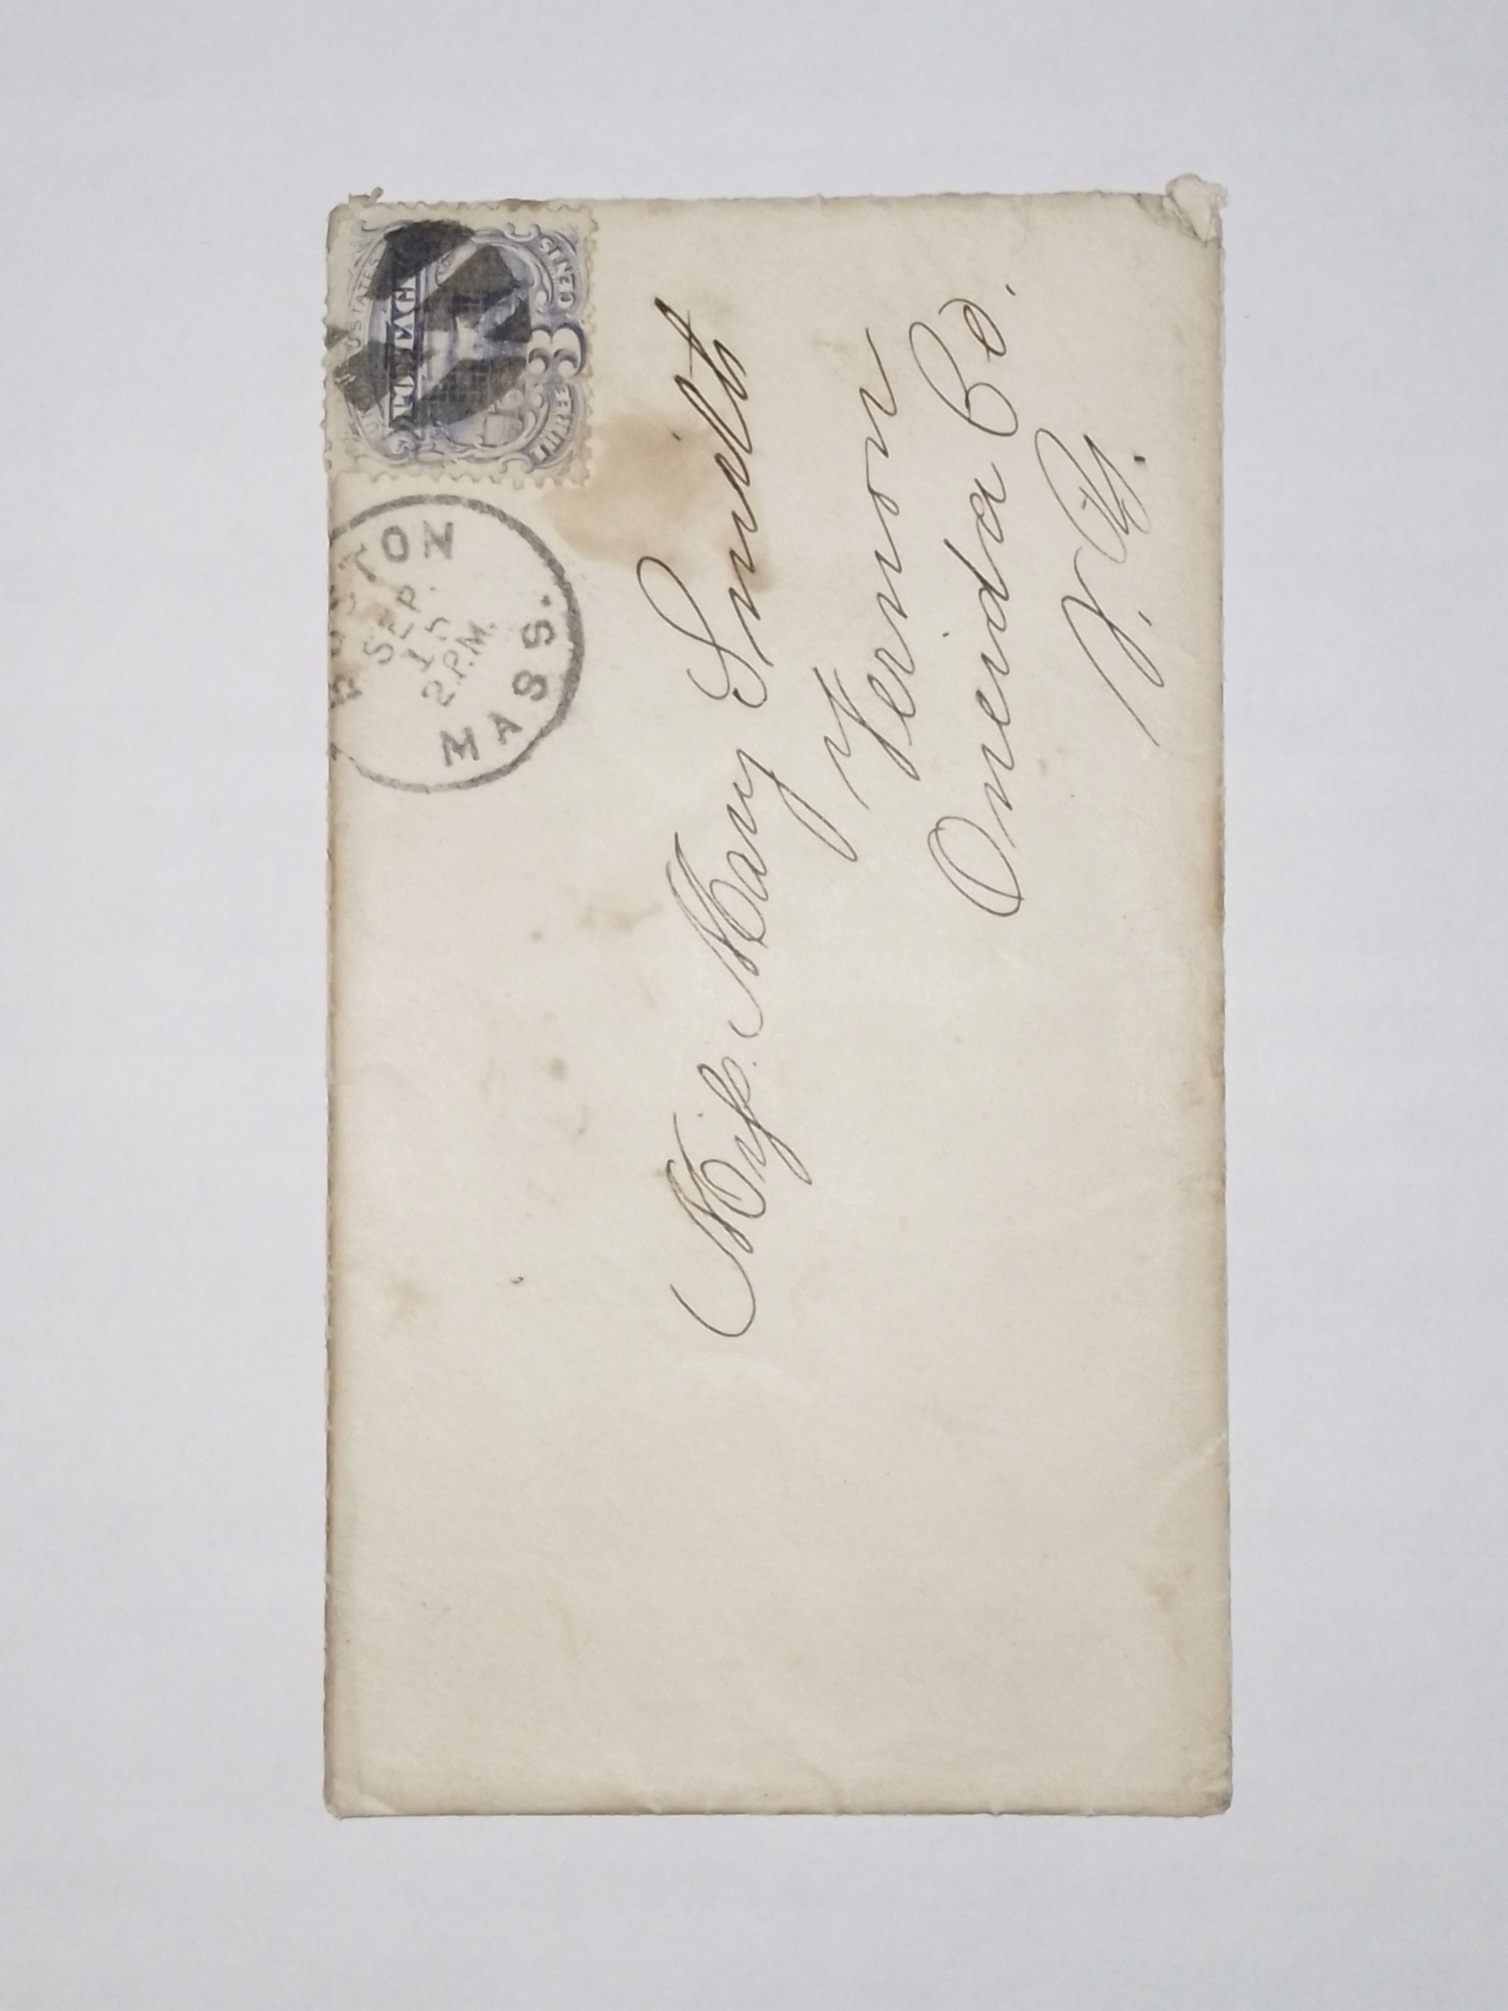 UNITED STATES
POSTAGE
THREE 3 CENTS
BOSTON
SEP.
15
2.P.M.
MASS.
Miss. Mary Smith
Vernon
Oneida Co.
N.Y.